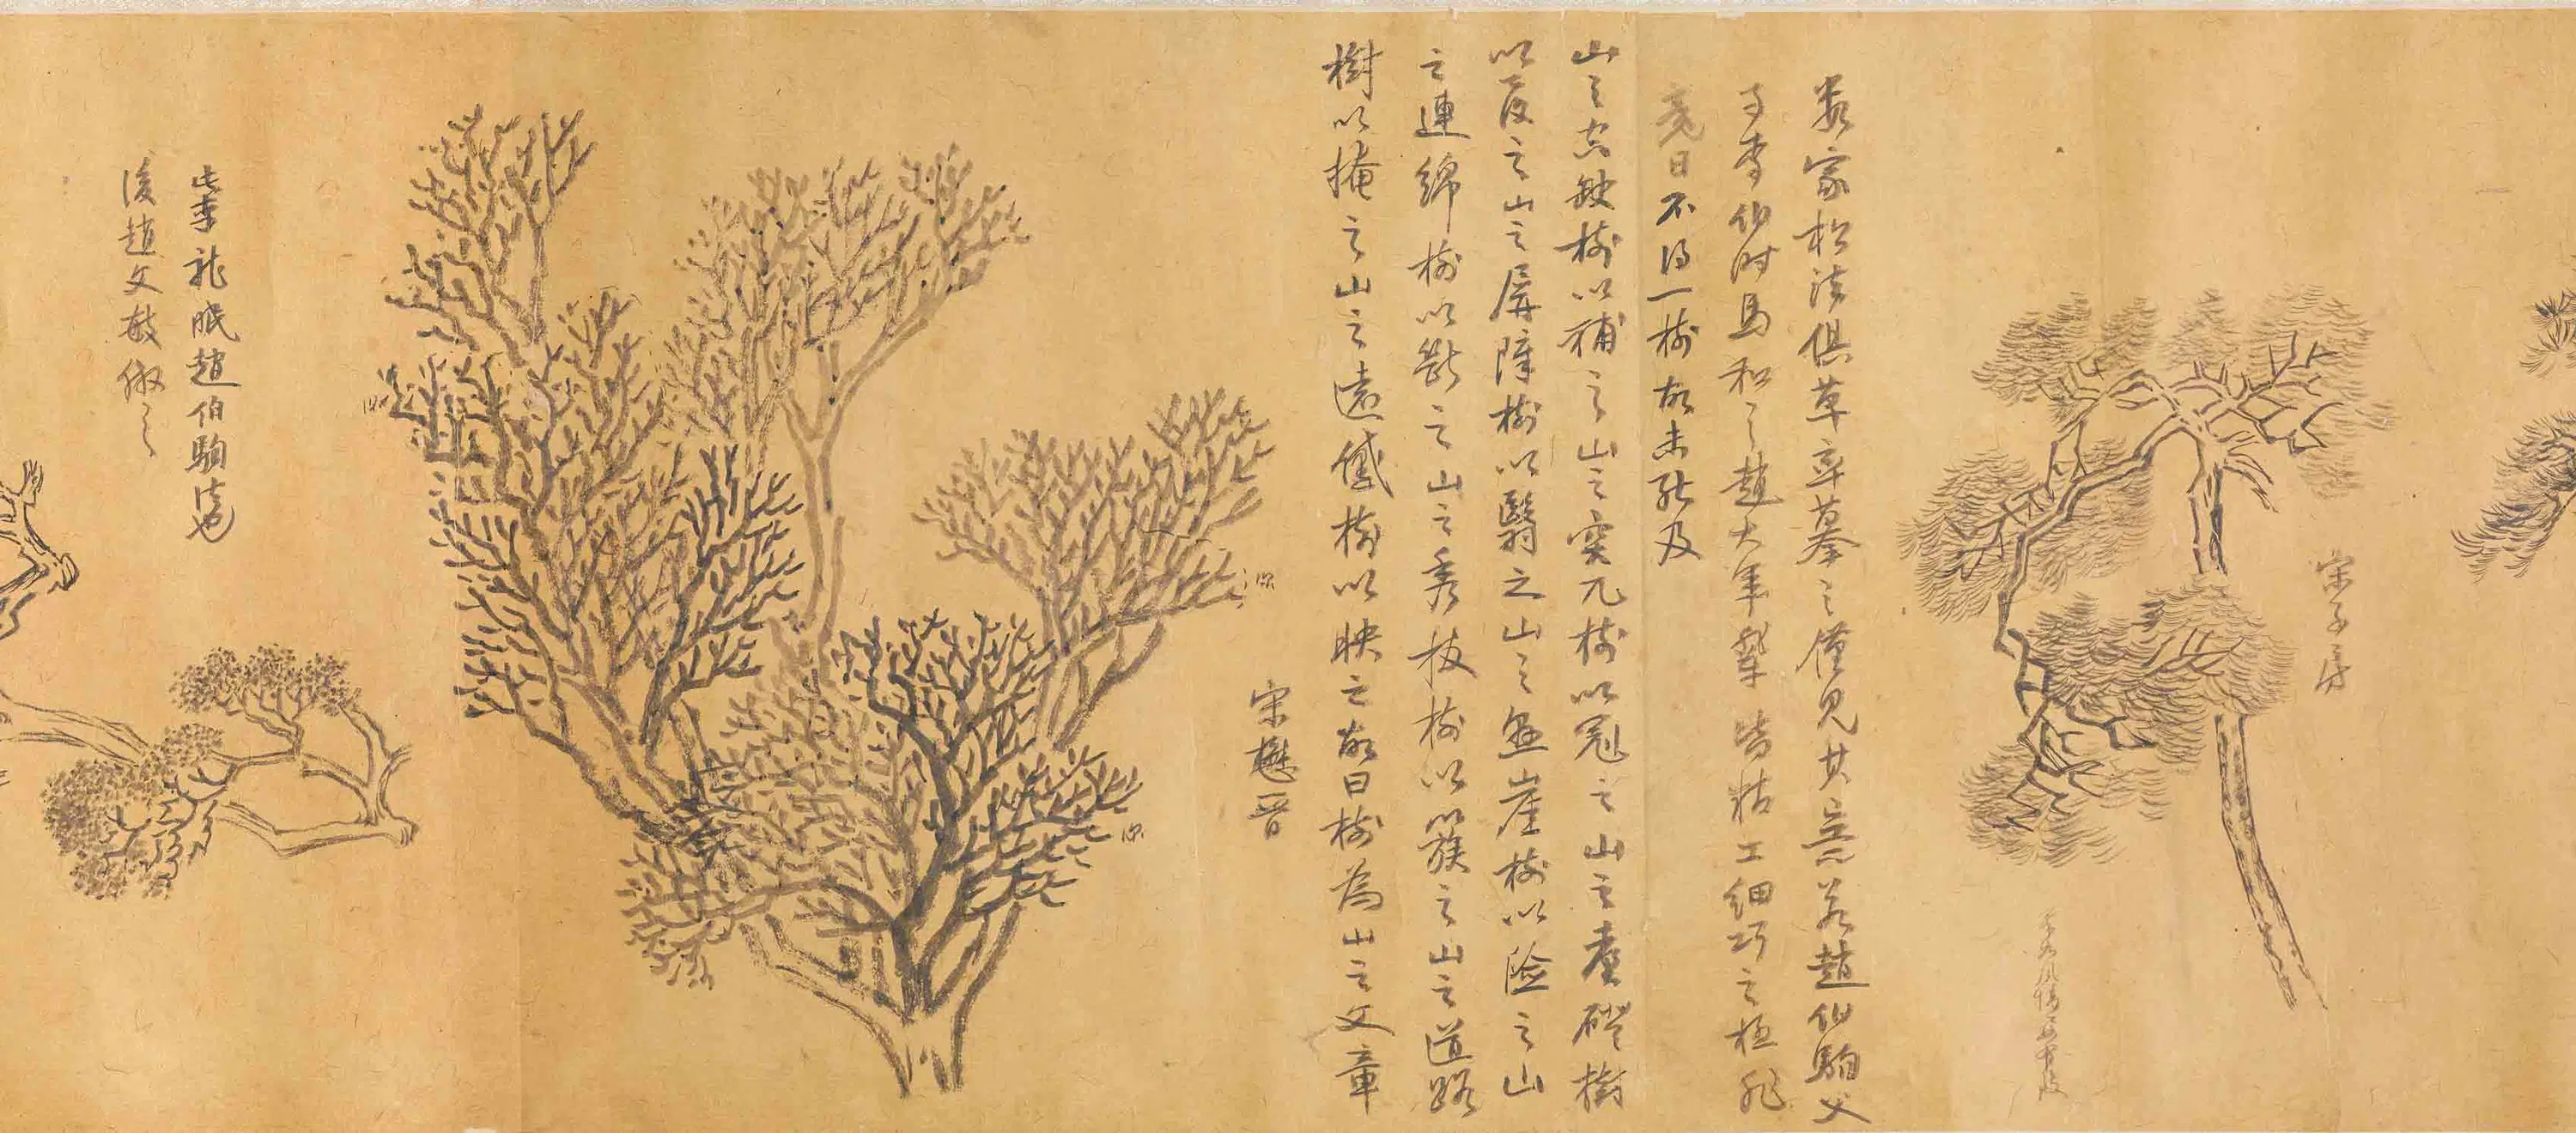 宋子房
數家松法俱草率摹之僅見其意若趙伯駒父
子李伯時馬和之趙大年輩皆精工細巧之極非
竟日不得一樹故未能及
山之空缺樹以補之山之突兀樹以冠之山之磴樹
以之山之屏障樹以翳之山之懸崖樹以險之山
之連綿樹以斷之山之秀拔樹以簇之山之道路
樹以掩之山之遠樹以映之故曰樹為山之文章
宋懋晋
此李龍眠趙伯駒法也
後趙文敏倣之
深
深